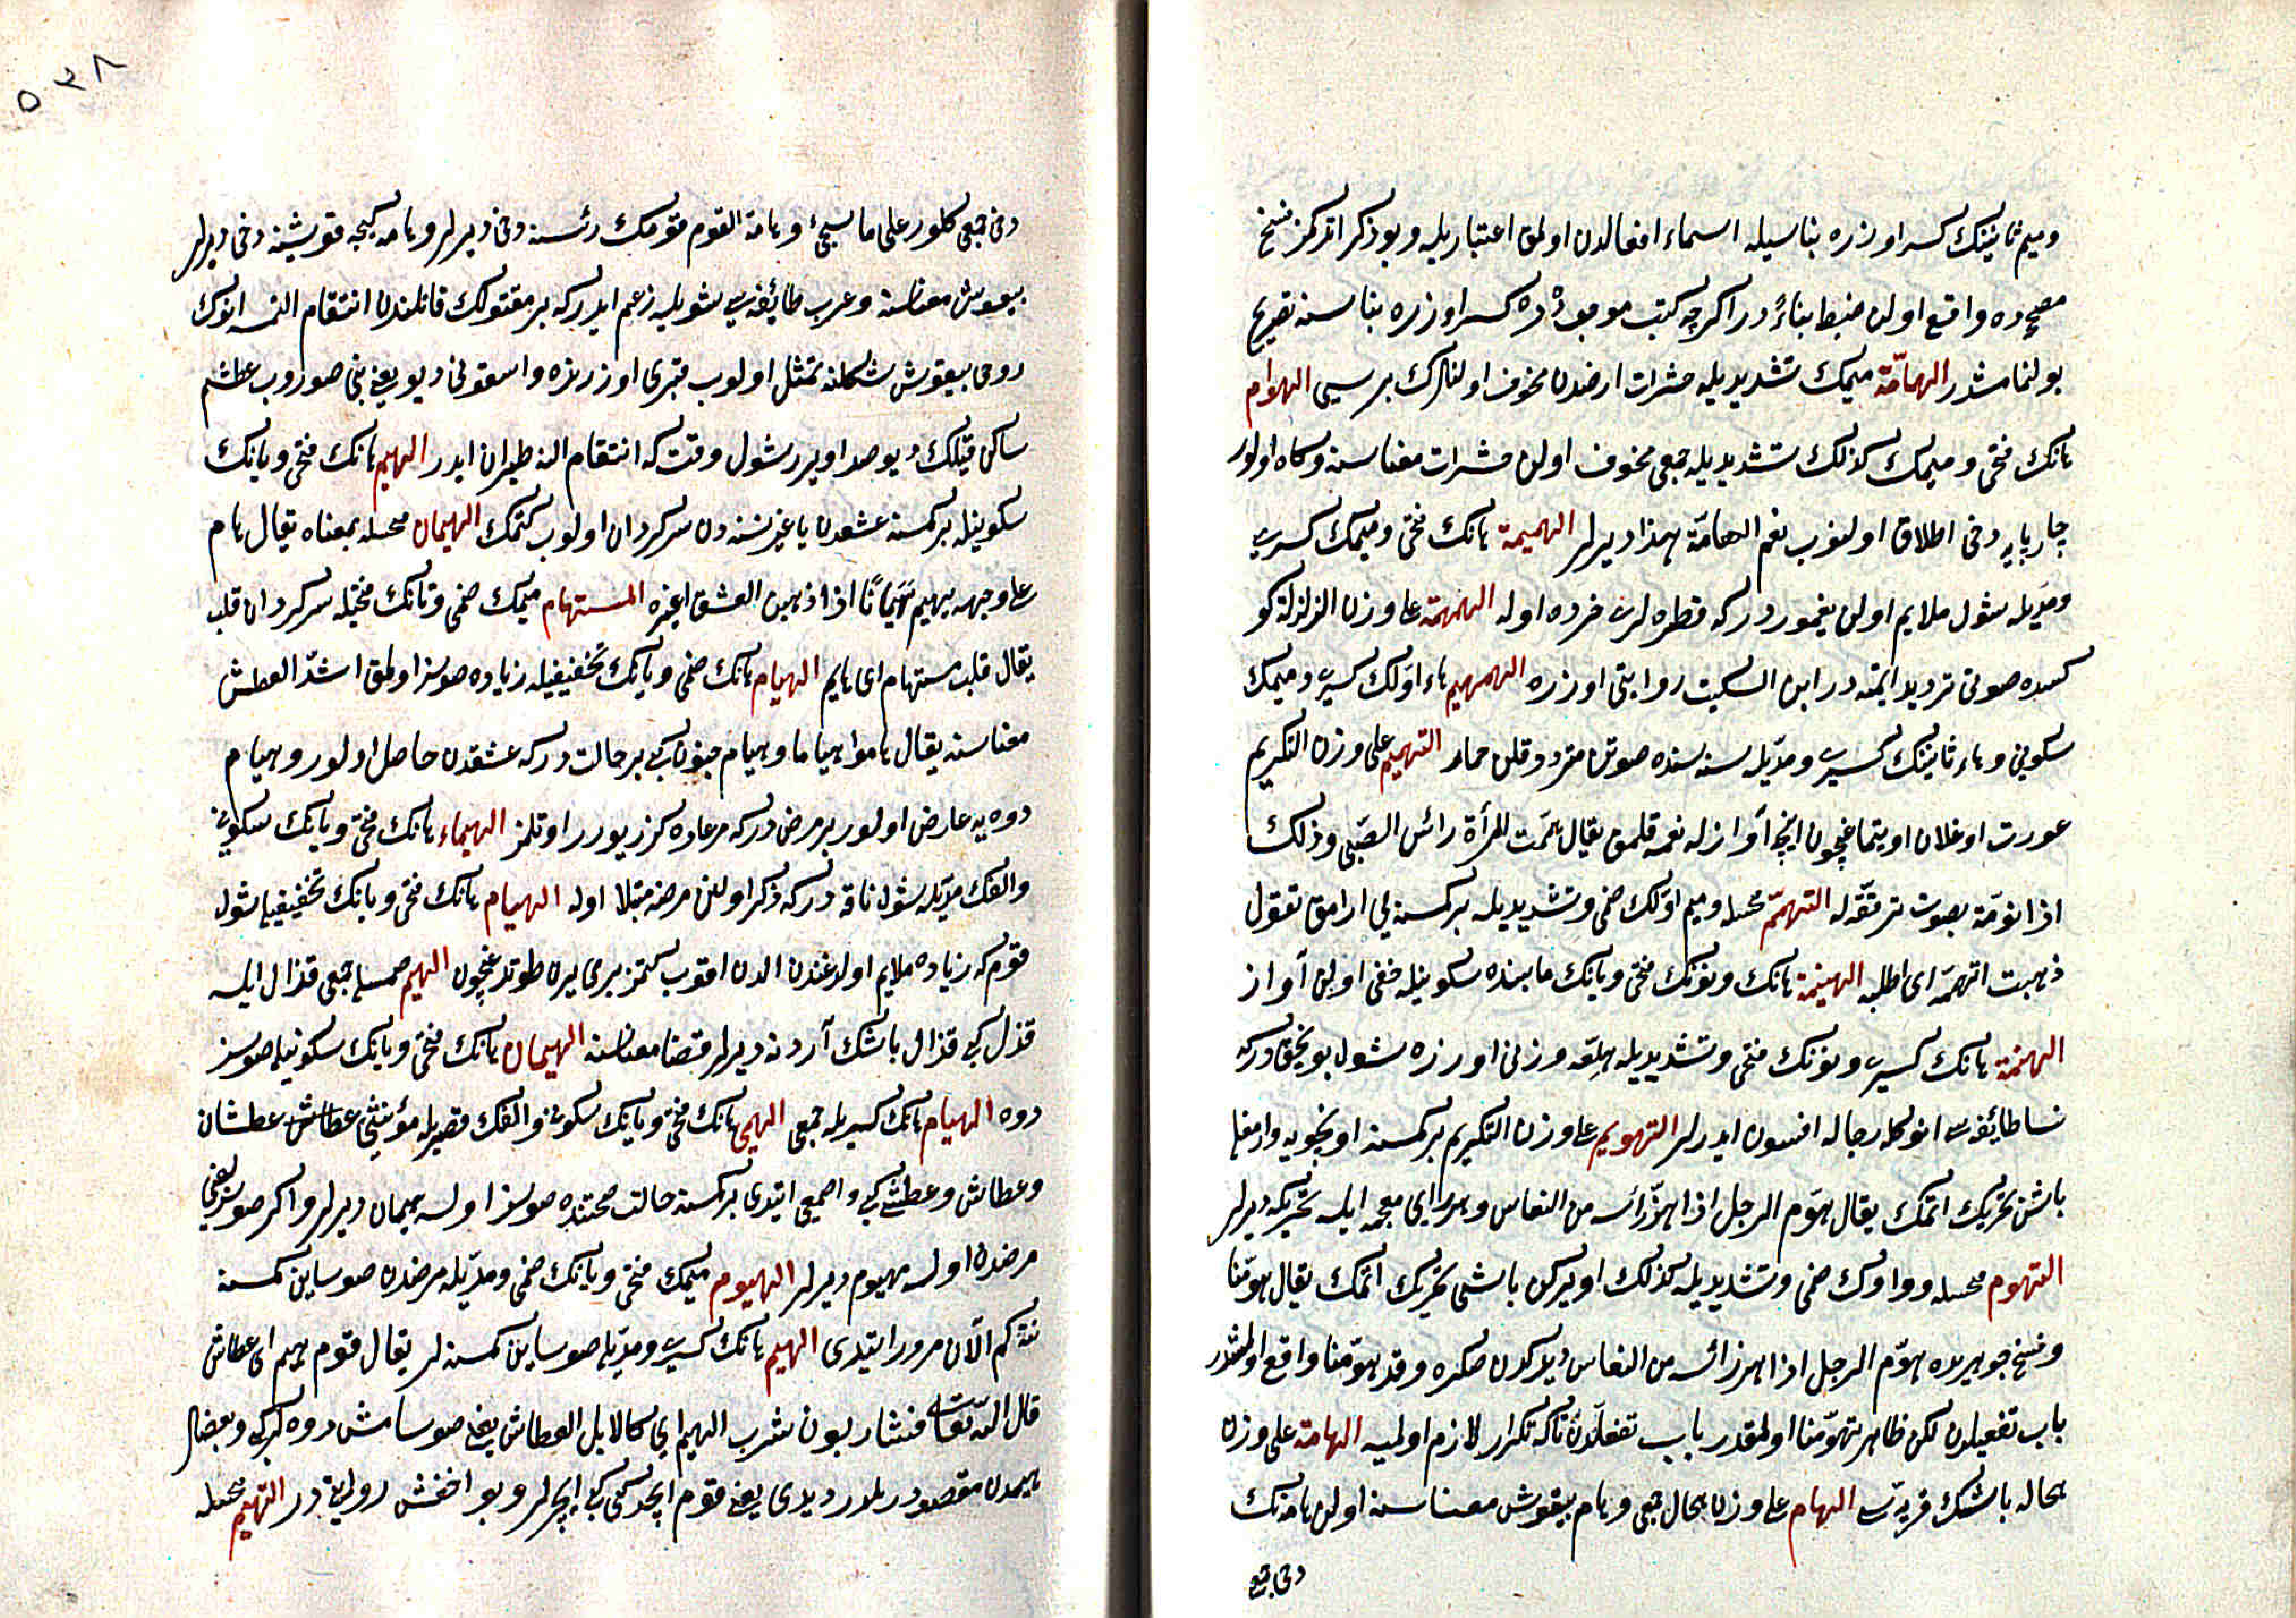 وميم ثانينك كسر اوزره بناسيله اسماء افعالدن اولمق اعتباريله وبو ذكر اتدكمز نسخ
مصححده واقع اولن ضبط بناءً در اكرچه كتب موجوده ده كسر اوزره بناسنه تصريح
بولنمامشدر الهامّة ميمك تشديديله حشرات ارضدن مخوف اولنلرك برسى الهوام
هانك فتحى وميمك كذلك تشديديله جمعى مخوف اولن حشرات معناسنه وكاه اولور
چارپايه دخى اطلاق اولنوب نعم الهامّة هذا ديرلر الهميمة هانك فتحى وميمك كسرى
ومدّيله شول ملايم اولن يغموردركه قطره لرى خرده اوله الهمهمة على وزن الزلزلة كو
كسده صوتى ترديد اتمكدر ابن السكيت روايتى اوزره الهمهيم هاء اوّلك كسرى وميمك
سكونى وهاء ثانينك كسرى ومدّيله سنه سنده صوتن متردد قلن حمار التهميم على وزن التكريم
عورت اوغلان اويتماغچون اينجه آوازله نغمه قلمق يقال همّمت المرأة رأس الصبّى وذلك
اذا نوّمته بصوت ترققه له التهمّم محسله وميم اوّلك ضمى وتشديديله بركمسنه يى ارامق تقول
ذهبت اتهمّمه اى اطلبه الهينمة هانك ونونك فتحى ويانك مابينده سكونيله خفى اولن آواز
الهنمة هانك كسرى ونونك فتحى وتشديديله هلّعه وزنى اوزره شول بونجقدركه
نسا طائفه سى انوكله رجاله افسون ايدرلر التهويم على وزن التكريم بركمسنه اويخويه وارمغله
باشن تحريك اتمك يقال هوّم الرجل اذا هزّ رأسه من النعاس وهزّ زاى معجمه ايله تحريكه ديرلر
التهوم محسله وواوك ضمى وتشديديله كذلك اويركن باشى تحريك اتمك يقال هوّمنا
ونسخ جوهريده هوّم الرجل اذا هز رأسه من النعاس ديدكدن صكره وقد هوّمنا واقع اولمشدر
باب تفعيلدن لكن ظاهر تهوّمنا اولمقدر باب تفعّلدن تاكه تكرار لازم اولميه الهامة على وزن
الحاله باشك قريّه سى الهام على وزن الحال جمعى وهام بيقوش معناسنه اولن هامه نك
دخى جمعى
دخى جمعى كلور على ما سيجئ وهامة القوم قومك رئيسنه دخى ديرلر وهامه كيجه قوشينه دخى ديرلر
بيقوش معناسنه وعرب طائفه سى شويله زعم ايدركه بر مقتولك قاتلندن انتقام النمسه انوك
روحى بيقوش شكلنه تمثل اولوب قبرى اوزرنده واسقونى ديو يعنى بنى صوروب عطشم
ساكن قيلك ديو صدا ويرر شول وقت كه انتقام النه طيران ايدر الهيم هانك فتحى ويانك
سكونيله بركمسنه عشقدن يا غير نسنه دن سركردان اولوب كتمك الهيمان محسله بمعناه يقال هام
على وجهه يهيم هيمانًا اذا ذهب من العشق او غيره المستهام ميمك ضمى وتانك فتحيله سركردان قلب
يقال قلب مستهام اى هايم الهيام هانك ضمى ويانك تخفيفيله زياده صوسز اولمق اشدّ العطش
معناسنه يقال هاموا هياما وهيام جنون كبى بر حالت دركه عشقدن حاصل اولور وهيام
دوه يه عارض اولور بر مرض دركه مرعاده كزر يورر اوتلمز الهيماء هانك فتحى ويانك سكونى
والفك مدّيله شول ناقه دركه ذكر اولنن مرضه مبتلا اوله الهيام هانك فتحى ويانك تخفيفيله شول
قوم كه زياده ملايم اولدغندن الدن اقوب كتمز برى برن طوتدغچون الهيم ضمسيله جمعى قذال ايله
قذل كبى قذال باشك آردنه ديرلر قفا معناسنه الهيمان هانك فتحى ويانك سكونيله صوسز
دوه الهيام هانك كسريله جمعى الهيمى هانك فتحى ويانك سكونى والفك قصريله مؤنثى عطاش عطشان
وعطاش وعطشى كبى واصمعى ايتدى بركمسنه حالت صحتنده صوسز اولسه هيمان ديرلر واكر صوسزلغى
مرضدن اولسه مهيوم ديرلر الهيوم ميمك فتحى ويانك ضمى ومدّيله مرضدن صوساين كمسنه
نته كم الآن مرور ايتدى الهيم هانك كسرى ومدّيله صوساين كمسنه لر يقال قوم هيم اى عطاش
قال الله تعالى فشاربون شرب الهيم اى كالابل العطاش يعنى صوسامش دوه لر كبى وبعضلر
هيمدن مقصود رملدر ديدى يعنى قوم ايچدكى كبى ايچرلر وبو اخفش روايتيدر التهيم محسله
٥٣٨